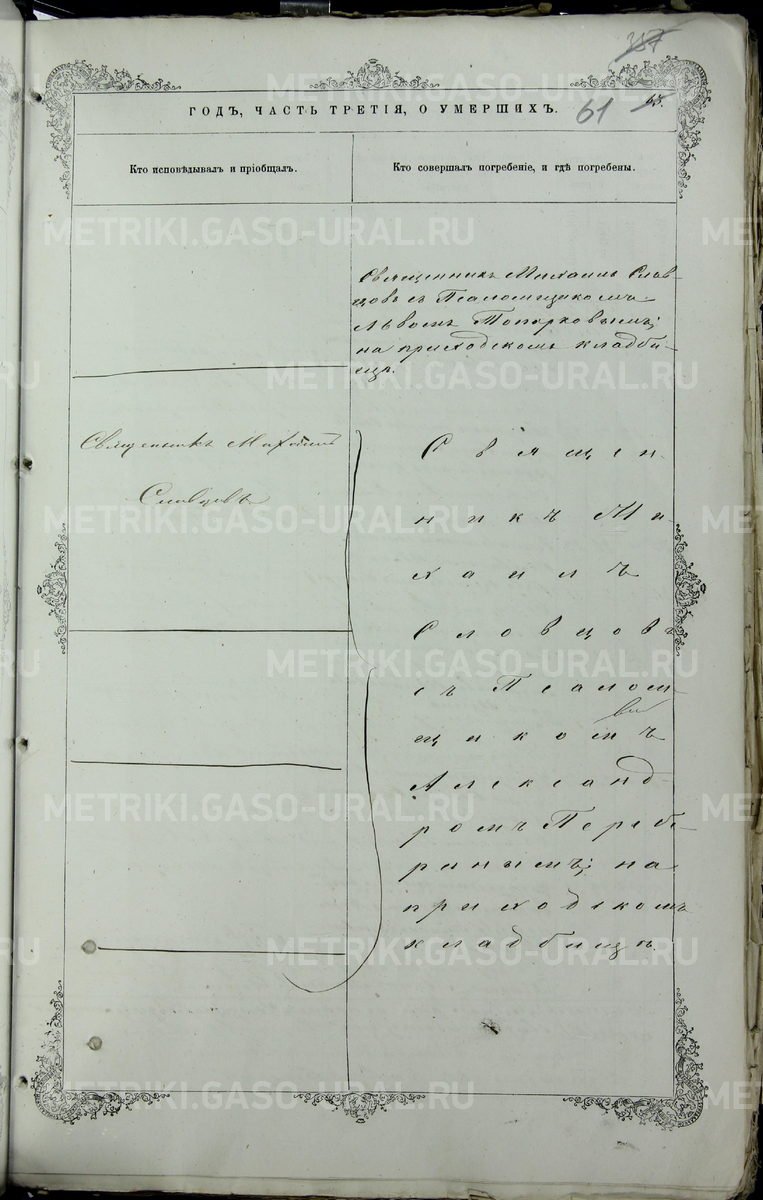 337
61
63.
ГОДЪ, ЧАСТЬ ТРЕТІЯ, О УМЕРШИХЪ.
Кто исповѣдывалъ и пріобщалъ.
Кто совершалъ погребеніе, и гдѣ погребены.
Священникъ Михаилъ Слов-
цовъ съ Псаломщикомъ
Львомъ Топорковымъ;
на приходскомъ кладби-
щѣ.
Священникъ Михаилъ
Словцовъ
Священ
никъ Ми
хаилъ
Словцовъ
съ Псалом
щикомъ
Александ
ромъ
на
приходскомъ
кладбищѣ.
METRIKI.GASO-URAL.RU